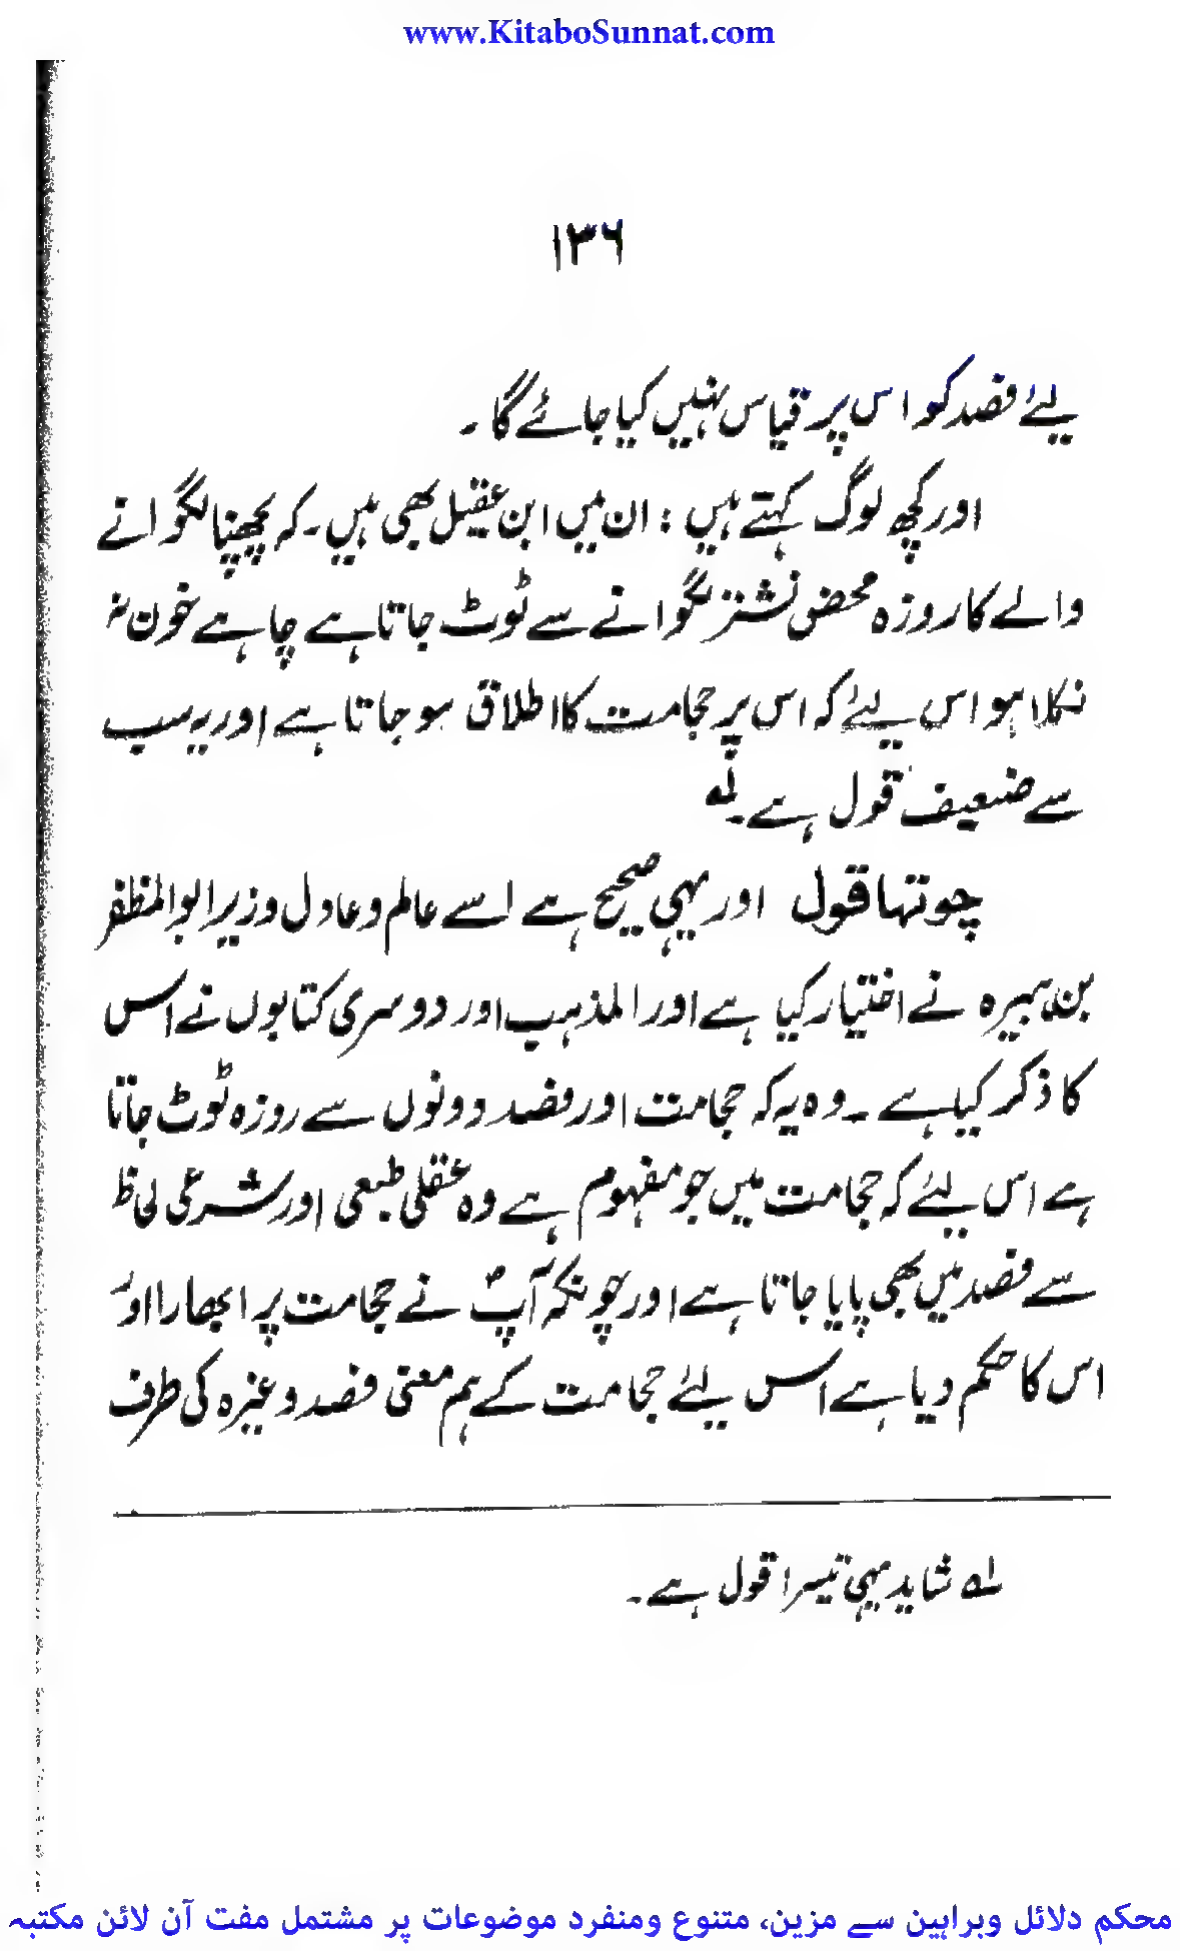 www.KitaboSunnat.com
۱۳۶
لیئے فصد کو اس پر قیاس نہیں کیا جائے گا۔
اور کچھ لوگ کہتے ہیں : ان میں ابن عقیل بھی ہیں۔ کہ پچھنا لگوانے
والے کا روزہ محض نشتر لگوانے سے ٹوٹ جاتا ہے چاہے خون نہ
نکلا ہو اس لیئے کہ اس پر حجامت کا اطلاق ہو جاتا ہے اور یہ سب
سے ضعیف قول ہے۔ لہ
چوتھا قول اور یہی صحیح ہے اسے عالم و عادل وزیر ابو المظفر
بن ہبیرہ نے اختیار کیا ہے اور المذہب اور دوسری کتابوں نے اس
کا ذکر کیا ہے ۔ وہ یہ کہ حجامت اور فصد دونوں سے روزہ ٹوٹ جاتا
ہے اس لیئے کہ حجامت میں جو مفہوم ہے وہ عقلی طبعی اور شرعی لحاظ
سے فصد میں بھی پایا جاتا ہے اور چونکہ آپؐ نے حجامت پر ابھارا اور
اس کا حکم دیا ہے اس لیئے حجامت کے ہم معنی فصد وغیرہ کی طرف
لہ شاید یہی تیسرا قول ہے۔
محکم دلائل وبراہین سے مزین، متنوع ومنفرد موضوعات پر مشتمل مفت آن لائن مکتبہ